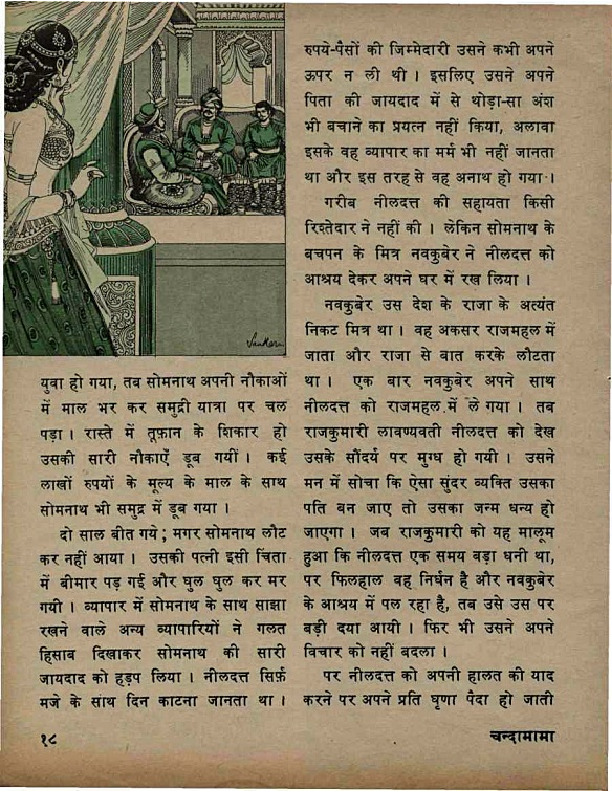 Sankar
युवा हो गया, तब सोमनाथ अपनी नौकाओं
में माल भर कर समुद्री यात्रा पर चल
पड़ा । रास्ते में तूफ़ान के शिकार हो
उसकी सारी नौकाएँ डूब गयीं । कई
लाखों रुपयों के मूल्य के माल के साथ
सोमनाथ भी समुद्र में डूब गया ।
दो साल बीत गये ; मगर सोमनाथ लौट
कर नहीं आया । उसकी पत्नी इसी चिंता
में बीमार पड़ गई और घुल घुल कर मर
गयी । व्यापार में सोमनाथ के साथ साझा
रखने वाले अन्य व्यापारियों ने गलत
हिसाब दिखाकर सोमनाथ की सारी
जायदाद को हड़प लिया । नीलदत्त सिर्फ़
मजे के साथ दिन काटना जानता था ।
रुपये-पैसों की जिम्मेदारी उसने कभी अपने
ऊपर न ली थी । इसलिए उसने अपने
पिता की जायदाद में से थोड़ा-सा अंश
भी बचाने का प्रयत्न नहीं किया, अलावा
इसके वह व्यापार का मर्म भी नहीं जानता
था और इस तरह से वह अनाथ हो गया ।
गरीब नीलदत्त की सहायता किसी
रिश्तेदार ने नहीं की । लेकिन सोमनाथ के
बचपन के मित्र नवकुबेर ने नीलदत्त को
आश्रय देकर अपने घर में रख लिया ।
नवकुबेर उस देश के राजा के अत्यंत
निकट मित्र था । वह अकसर राजमहल में
जाता और राजा से बात करके लौटता
था । एक बार नवकुबेर अपने साथ
नीलदत्त को राजमहल में ले गया । तब
राजकुमारी लावण्यवती नीलदत्त को देख
उसके सौंदर्य पर मुग्ध हो गयी । उसने
मन में सोचा कि ऐसा सुंदर व्यक्ति उसका
पति बन जाए तो उसका जन्म धन्य हो
जाएगा । जब राजकुमारी को यह मालूम
हुआ कि नीलदत्त एक समय बड़ा धनी था,
पर फिलहाल वह निर्धन है और नवकुबेर
के आश्रय में पल रहा है, तब उसे उस पर
बड़ी दया आयी । फिर भी उसने अपने
विचार को नहीं बदला ।
पर नीलदत्त को अपनी हालत की याद
करने पर अपने प्रति घृणा पैदा हो जाती
१८
चन्दामामा